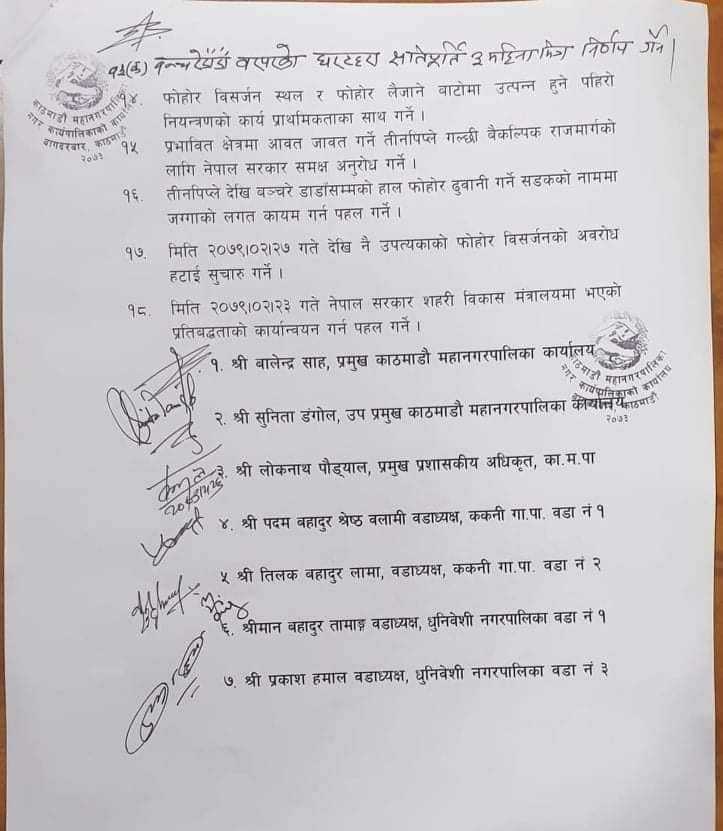 १३(क) वन्चरेडाँडा वरपरको घरटहरा क्षतिपूर्ति ३ महिना भित्र निर्णय गर्ने।
काठमाडौं महानगरपालिका
नगर कार्यपालिकाको कार्यालय
बागदरबार, काठमाडौं
२०७३
१४. फोहोर विसर्जन स्थल र फोहोर लैजाने बाटोमा उत्पन्न हुने पहिरो
नियन्त्रणको कार्य प्राथमिकताका साथ गर्ने ।
१५ प्रभावित क्षेत्रमा आवत जावत गर्ने तीनपिप्ले गल्छी बैकल्पिक राजमार्गको
लागि नेपाल सरकार समक्ष अनुरोध गर्ने ।
१६. तीनपिप्ले देखि वञ्चरे डाडाँसम्मको हाल फोहोर ढुवानी गर्ने सडकको नाममा
जग्गाको लगत कायम गर्न पहल गर्ने ।
१७. मिति २०७९।०२।२७ गते देखि नै उपत्यकाको फोहोर विसर्जनको अवरोध
हटाई सुचारु गर्ने ।
१८. मिति २०७९।०२।२३ गते नेपाल सरकार शहरी विकास मंत्रालयमा भएको
प्रतिबद्धताको कार्यान्वयन गर्न पहल गर्ने ।
१. श्री बालेन्द्र साह, प्रमुख काठमाडौ महानगरपालिका कार्यालय
काठमाडौं महानगरपालिका
नगर कार्यपालिकाको कार्यालय
काठमाडौं
२०७३
२. श्री सुनिता डंगोल, उप प्रमुख काठमाडौ महानगरपालिका कार्यालय
३. श्री लोकनाथ पौड्याल, प्रमुख प्रशासकीय अधिकृत, का.म.पा
४. श्री पदम बहादुर श्रेष्ठ वलामी वडाध्यक्ष, ककनी गा.पा. वडा नं १
५ श्री तिलक बहादुर लामा, वडाध्यक्ष, ककनी गा.पा. वडा नं २
६. श्रीमान बहादुर तामाङ्ग वडाध्यक्ष, धुनिवेशी नगरपालिका वडा नं १
७. श्री प्रकाश हमाल वडाध्यक्ष, धुनिवेशी नगरपालिका वडा नं ३